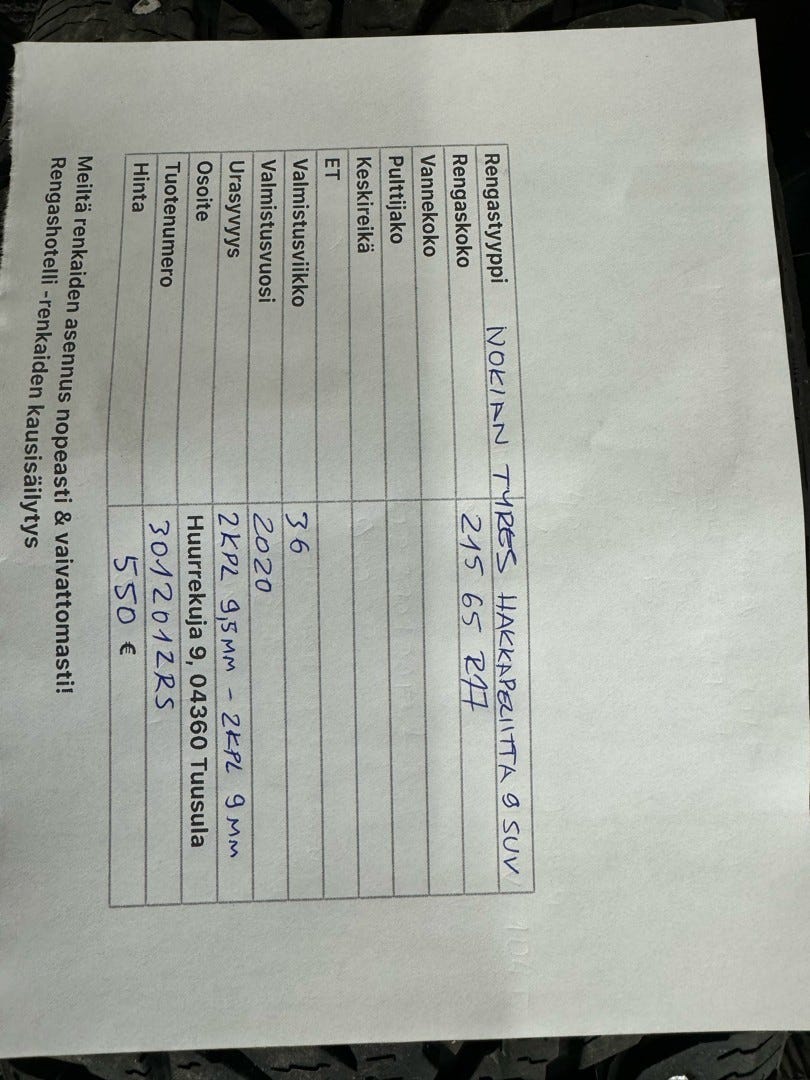 Rengastyyppi NOKIAN TYRES HAKKAPELIITTA 9 SUV
Rengaskoko 215 65 R17
Vannekoko
Pulttijako
Keskireikä
ET
Valmistusviikko 36
Valmistusvuosi 2020
Urasyvyys 2KPL 9,5MM - 2KPL 9MM
Osoite Huurrekuja 9, 04360 Tuusula
Tuotenumero 301201ZRS
Hinta 550 €
Meiltä renkaiden asennus nopeasti & vaivattomasti!
Rengashotelli -renkaiden kausisäilytys